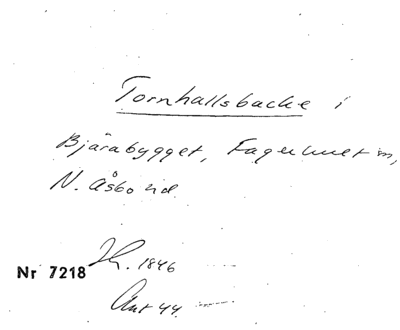 Tornhallsbacke i
Bjärabygget, Fagerhult m,
N. Åsbo hd.
Jh. 1846
Nr 7218
Ant 44.